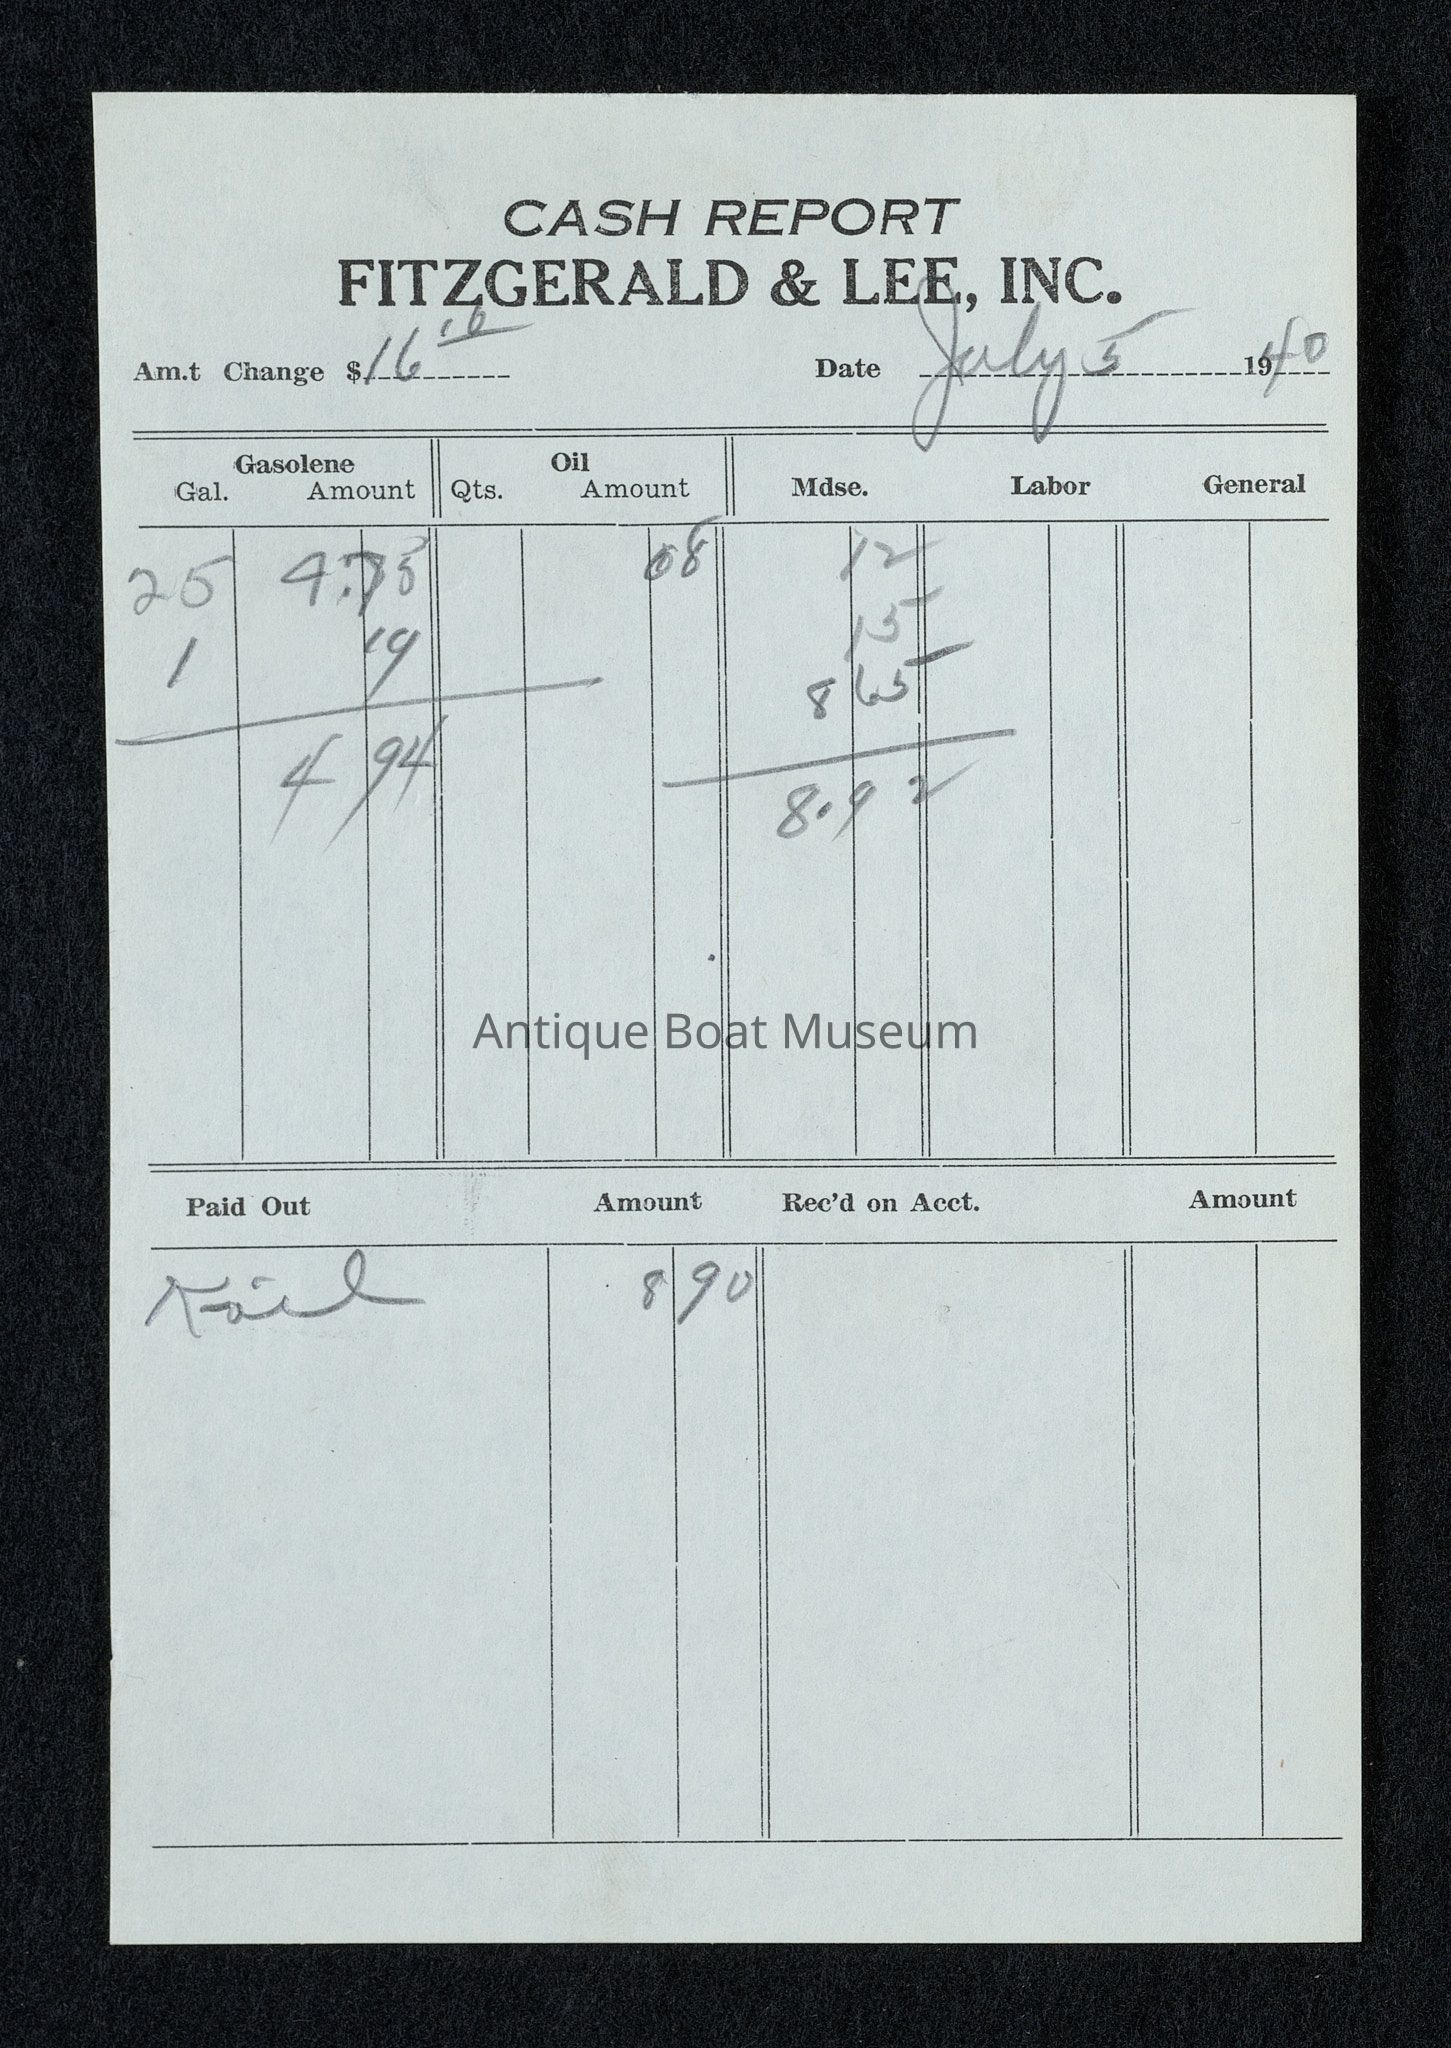 CASH REPORT
FITZGERALD & LEE, INC.
Am.t Change $ 16 10 Date July 5 1940
Gasolene Oil
Gal. Amount Qts. Amount Mdse. Labor General
25 4.75 08 12
1 19 15
8 65
4 94 8.92
Antique Boat Museum
Paid Out Amount Rec'd on Acct. Amount
8 90